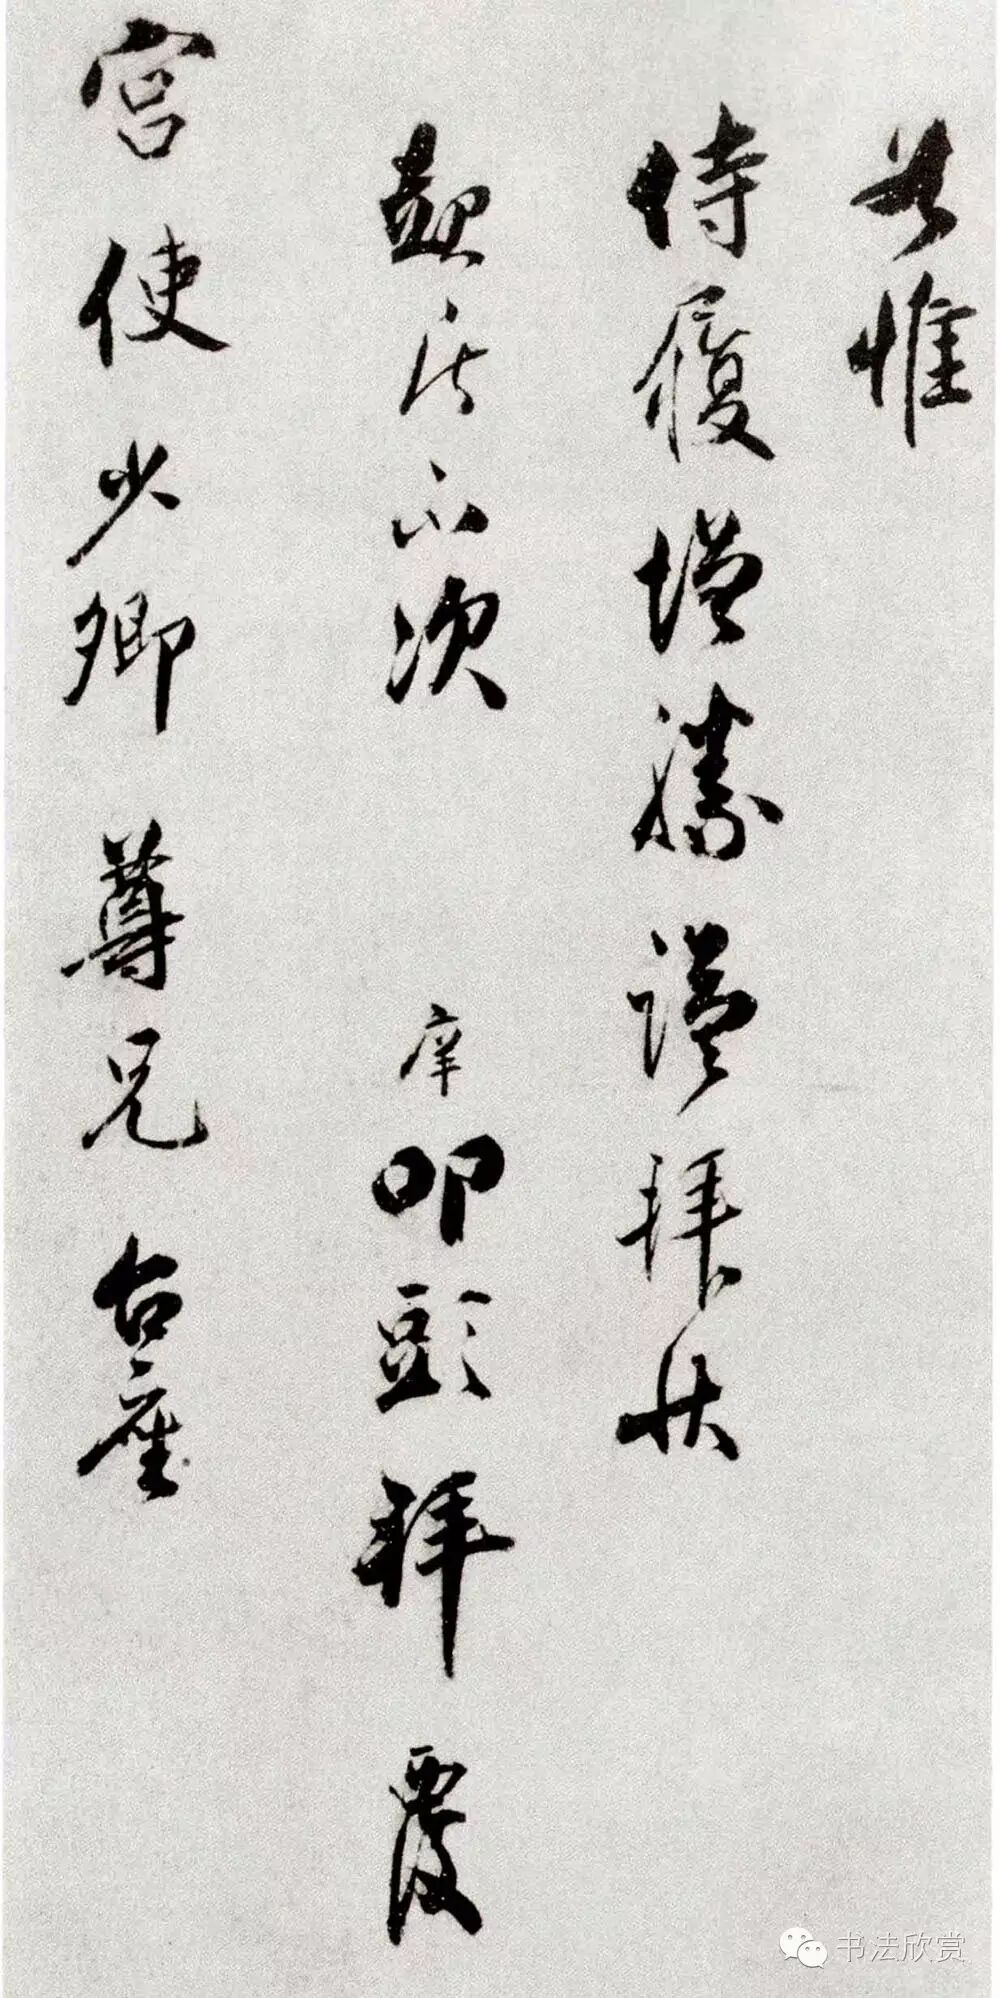 惟
侍履增勝謹拜狀
不次 叩頭拜覆
宮使少卿尊兄台座
书法欣赏